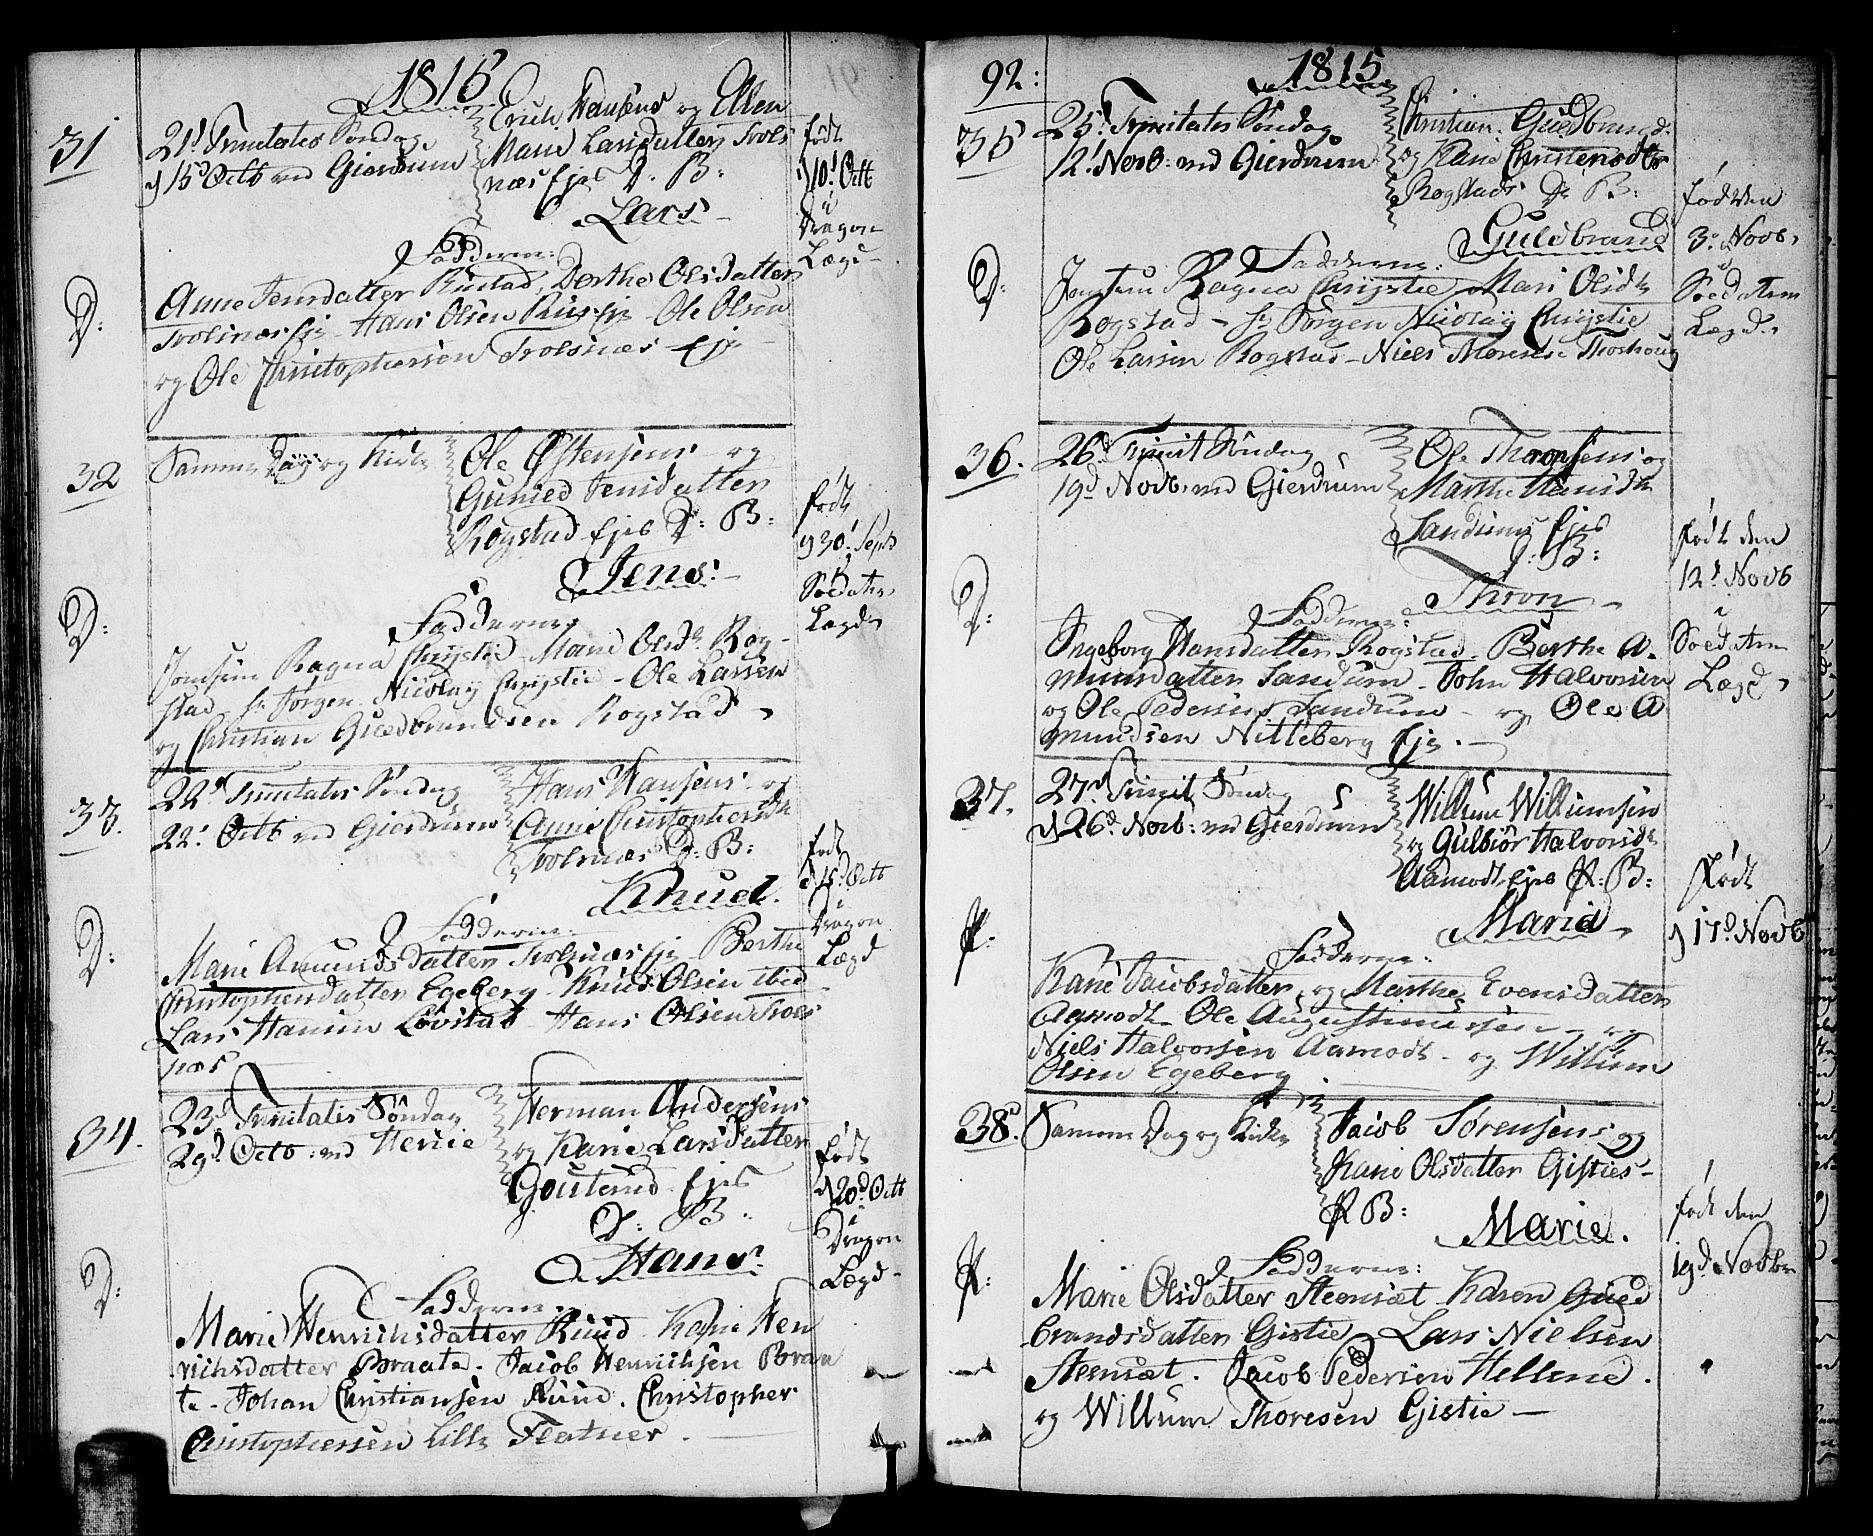 1815
31
21d Trinitatis Søndag
d 15d Octb ved Gierdrum
Erich Hansens og Ellen
Marie Larsdatter Trols
næs Ejes D. B:
Lars
Faddere:
født
d 10d Oct
i
Dragon
Lægd
D:
Anne Jensdatter Rustad, Dorthe Olsdatter
Trolsnæs Eje - Hans Olsen Ruus Eje - Ole Olsen
og Ole Christophersen Trolsnæs Eje
32
Samme Dag og Kirke
Ole Østensens og
Gunild Jensdatter
Rogstad Ejes D: B:
Jens
Faddere
født
d 30 Sept
i
Soldater
Lægd
D:
Jomfru Ragna Chrystie - Marie Olsdr Rog-
stad - Hr Jørgen Nicolay Chrystie - Ole Larsen
og Christian Guldbrandsen Rogstad
33.
22d Trinitatis Søndag
22. Octb ved Gierdrum
Hans Hansens og
Anne Christophersdr
Trolsnæs D. B:
Knud.
Faddere
født
d 15d Octb
i
Dragon
Lægd
D:
Marie Amundsdatter Trolsnæs Eje - Berthe
Christophersdatter Egeberg - Knud Olsen ibid
Lars Hansen Løvstad - Hans Olsen Trols
næs
34.
23d Trinitatis Søndag
29d Octb: ved Heni Kie
Herman Andersens
og Karie Larsdatter
Goulund Ejes
D: B:
Hans
Faddere
født
d 20d Oct
i
Dragon
Lægd
D:
Marie Henrichsdatter Ruud Karie Hen
richsdatter Braate. Jacob Henrichsen Braa
te - Johan Christiansen Ruud. Christopher
Christophersen Lille Flatner.
92:
1815
35
25d Trinitatis Søndag
12d Novb: ved Gierdrum
Christian Guldbrands.
og Karie Christensdtr
Rogstads D. B:
Guldbrand
Faddere:
født den
3. Novb.
i
Soldater
Lægd
D:
Jomfru Ragna Chrystie Mari Olsdr
Rogstad - Hr Jørgen Nicolay Chrystie
Ole Larsen Rogstad - Niels Thoresen Throshoug
36.
26d Trinit Søndag
19d Novb. ved Gierdrum
Ole Thronsens og
Marthe Hansdr
Sandums Ejes
D. B:
Thron
Faddere:
født den
12d Novb
i
Soldater
Lægd
D:
Ingeborg Hansdatter Rogstad. Berthe A-
mundsdatter Sandum - John Halvorsen
og Ole Pedersen Sandum - og Ole A
mundsen Nitteberg Eje.
37.
27d Trinit Søndag
d 26d Novb: ved Gierdrum
Willum Willumsen
og Gulbiør Halvorsdr
Aamodt Ejes P: B:
Marie
Faddere:
født
d 17d Novb
P:
Karie Jacobsdatter, og Marthe Evensdatter
Aamodt Ole Augustinussen - og
Niels Halvorsen Aamodt - og Willum
Olsen Egeberg
38.
Samme Dag og Kirke
Jacob Sørensens og
Karie Olsdatter Gisties -
P B:
Marie.
Faddere:
født den
19d Novbr
P:
Marie Olsdatter Steensæt Karen Guld
brandsdatter Gistie Lars Nielsen
Steensæt. Jacob Pedersen Hellene.
og Willum Thoresen Gistie -